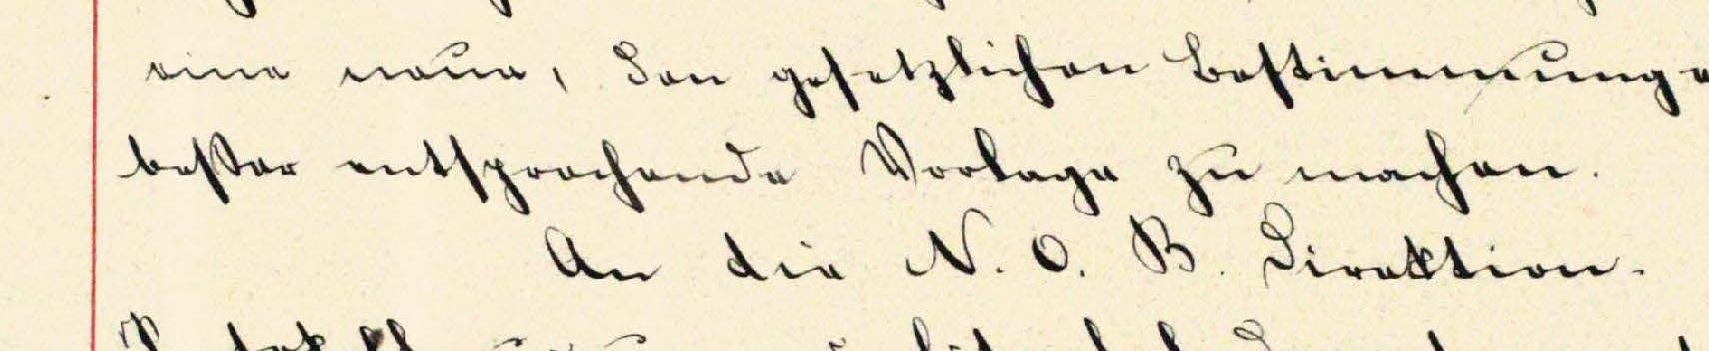 eine neue, den gesetzlichen Bestimmunge
besser entsprechende Vorlage zu machen.
An die N. O. B. Direktion.